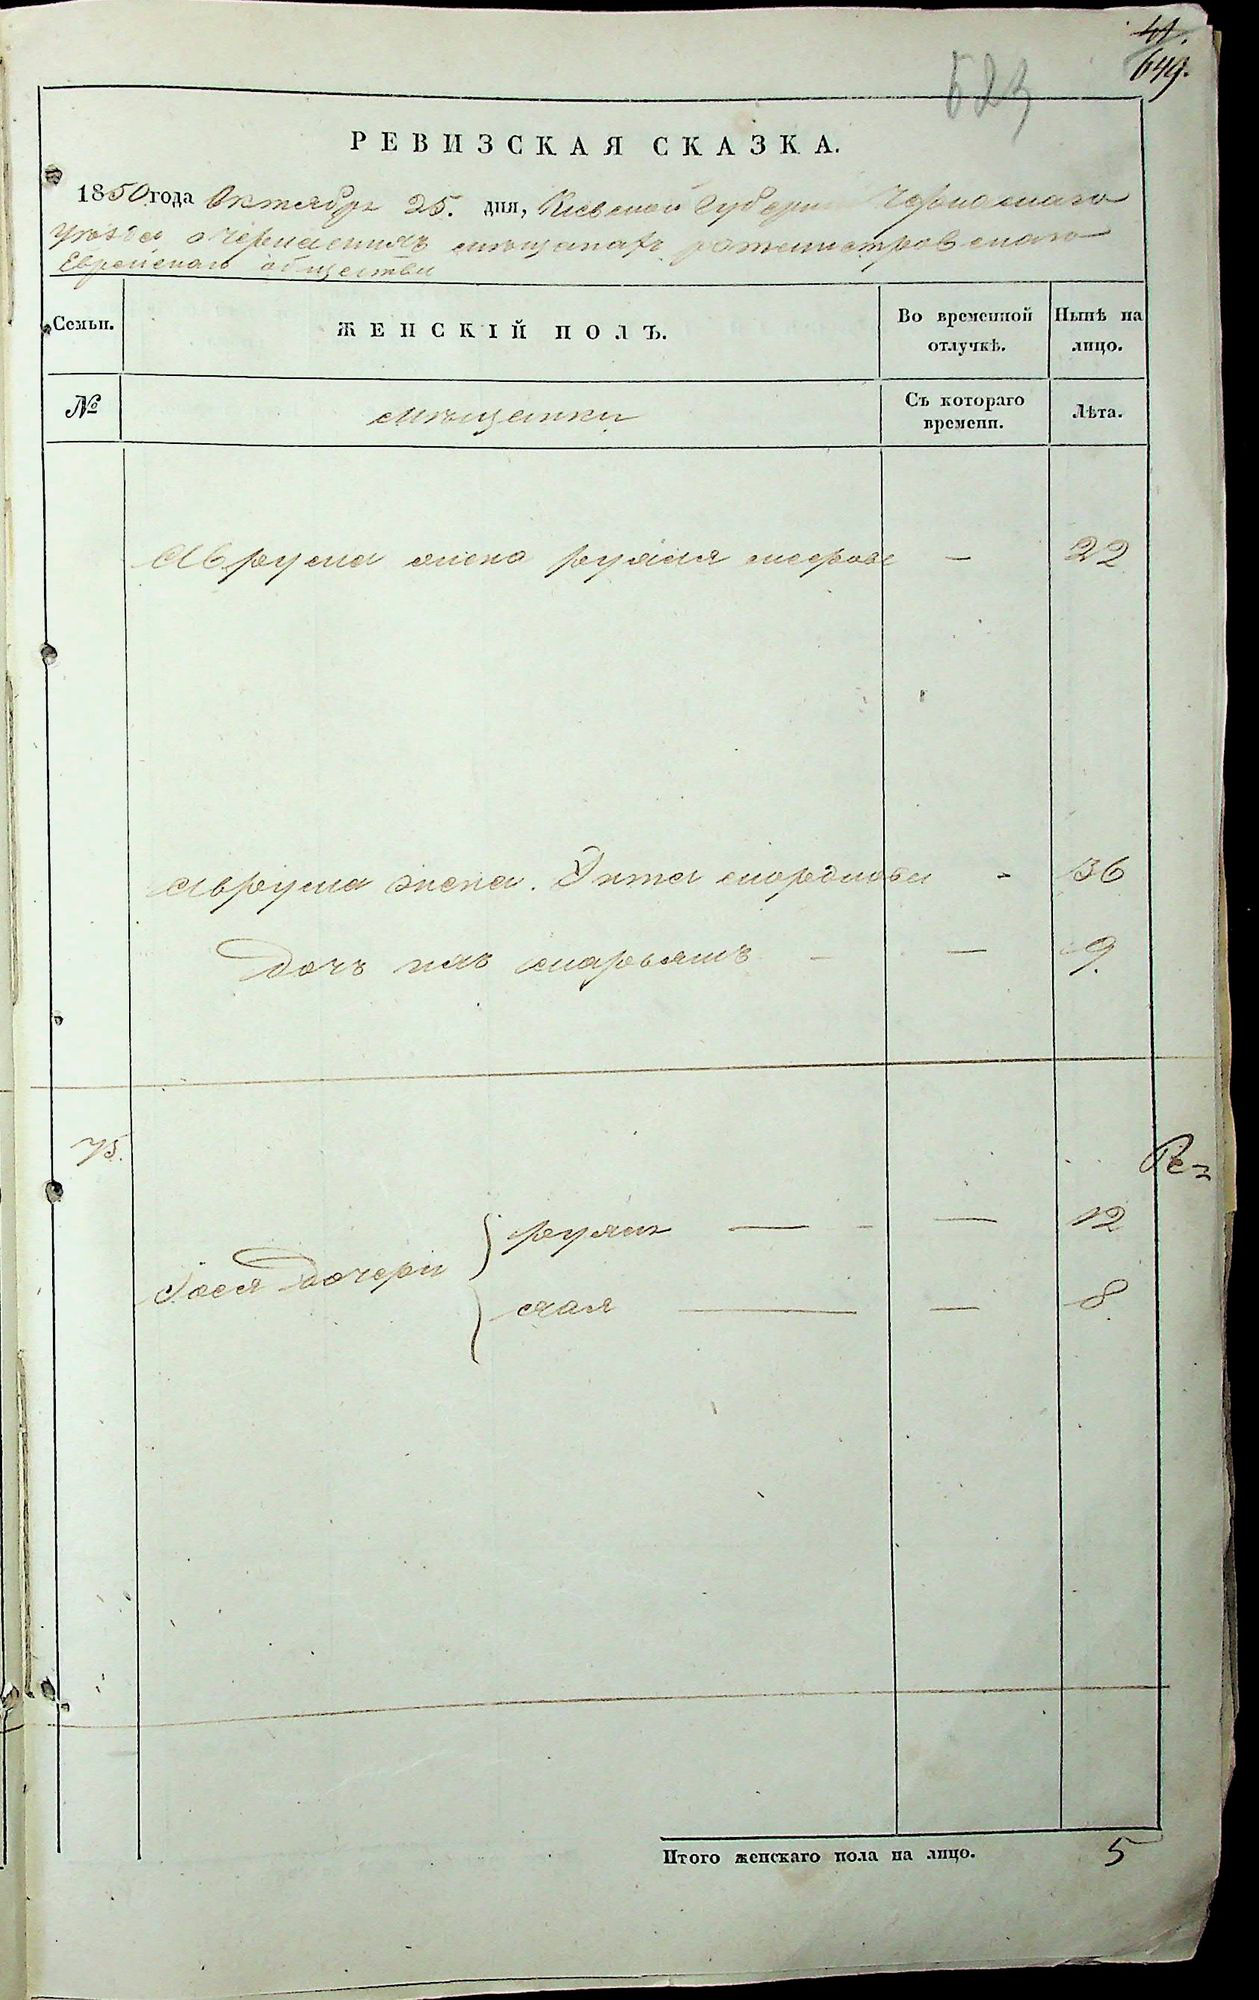 41.
649.
523
РЕВИЗСКАЯ СКАЗКА.
1850 года Октября 25. дня, Киевской Губернии Черкаскаго
уѣзда о черкаскихъ мещанахъ ротмистровскаго
Еврейскаго общества
Семьи. ЖЕНСКІЙ ПОЛЪ. Во временной отлучкѣ. Нынѣ на лицо.
№ мещанки Съ котораго времени. Лѣта.
Аврума жена рухля — 22
Аврума жена. Энта мордкова - 36
дочь ихъ марьямъ — — 9.
75.
Ре-
рухля — — — 12
Іося дочери
хая — — 8.
Итого женскаго пола на лицо. 5